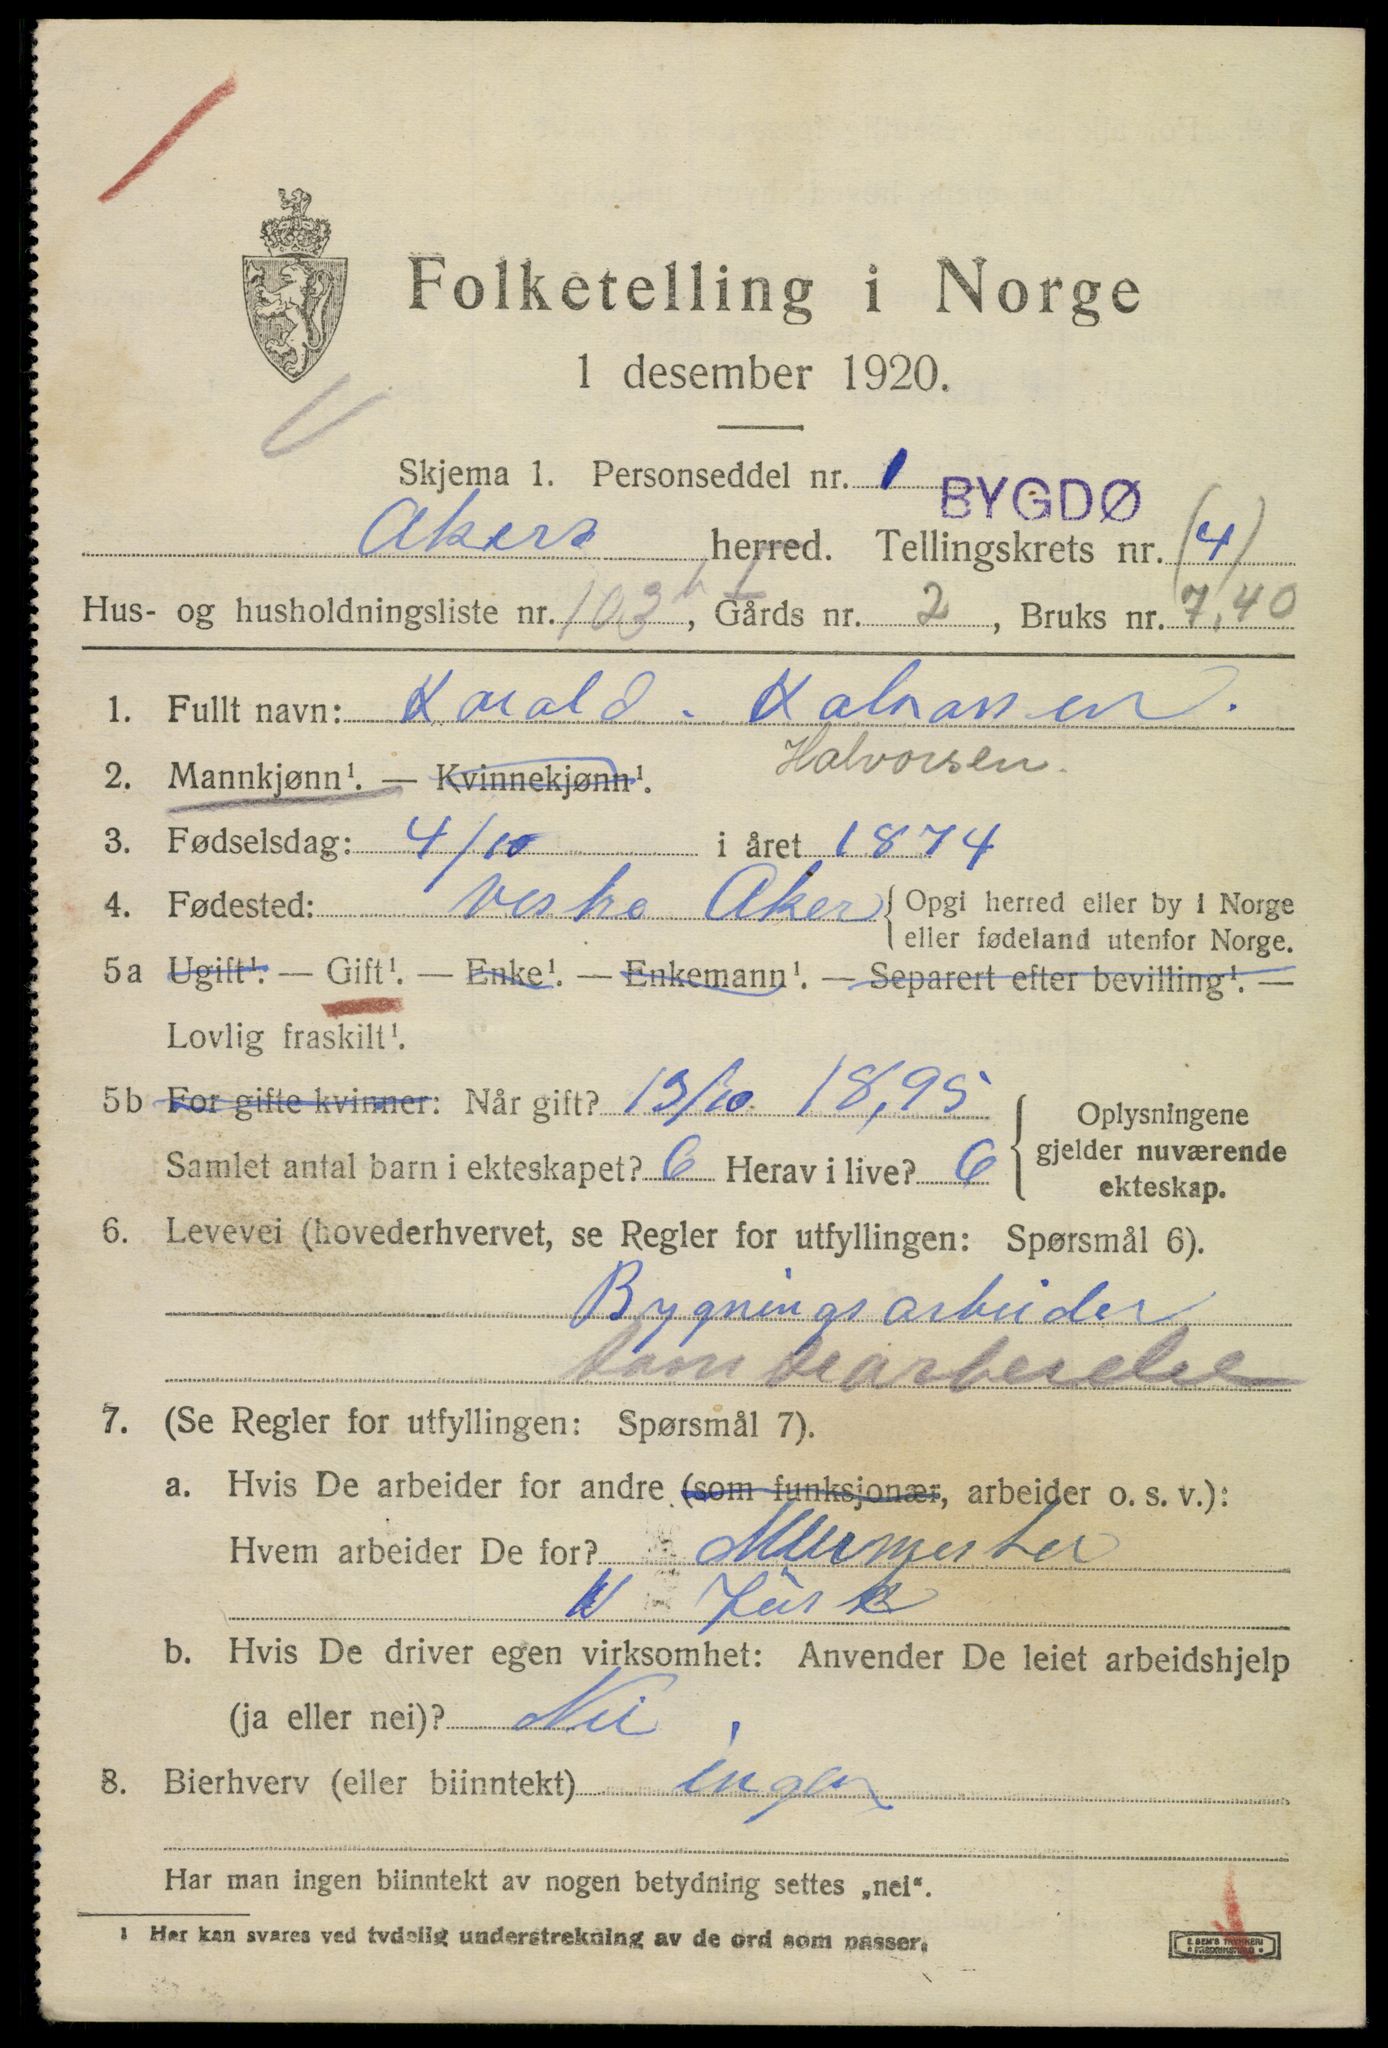 Folketelling i Norge
1 desember 1920.
Skjema 1. Personseddel nr. 1
BYGDØ
Akers herred. Tellingskrets nr. (4)
Hus- og husholdningsliste nr. 103 h I, Gårds nr. 2, Bruks nr. 7,40
1. Fullt navn: Harald. Halvorsen.
Halvorsen.
2. Mannkjønn¹. — Kvinnekjønn¹.
3. Fødselsdag: 4/10 i året 1874
4. Fødested: Vestre Aker { Opgi herred eller by i Norge
eller fødeland utenfor Norge.
5a Ugift¹. — Gift¹. — Enke¹. — Enkemann¹. — Separert efter bevilling¹. —
Lovlig fraskilt¹.
5b For gifte kvinner: Når gift? 13/10 18,95
Samlet antal barn i ekteskapet? 6 Herav i live? 6
{ Oplysningene
gjelder nuværende
ekteskap.
6. Levevei (hovederhvervet, se Regler for utfyllingen: Spørsmål 6).
Bygningsarbeider
7. (Se Regler for utfyllingen: Spørsmål 7).
a. Hvis De arbeider for andre (som funksjonær, arbeider o. s. v.):
Hvem arbeider De for? Murmester
b. Hvis De driver egen virksomhet: Anvender De leiet arbeidshjelp
(ja eller nei)? Nei
8. Bierhverv (eller biinntekt) ingen
Har man ingen biinntekt av nogen betydning settes „nei“.
1 Her kan svares ved tydelig understrekning av de ord som passer.